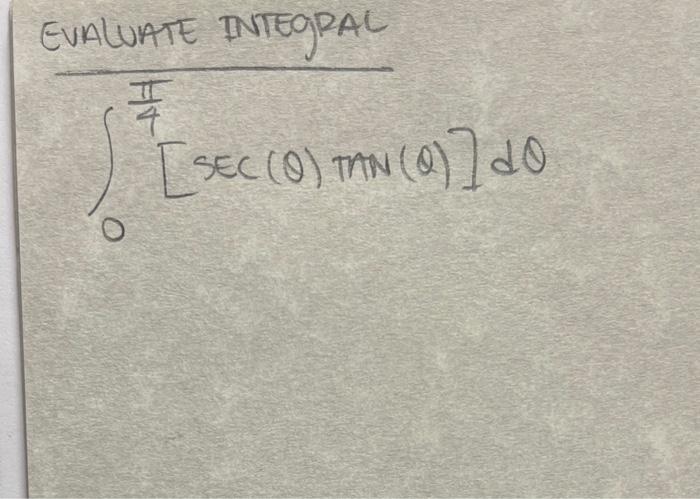 EVALUATE INTEGRAL
∫₀^(π/4) [SEC(θ) TAN(θ)] dθ